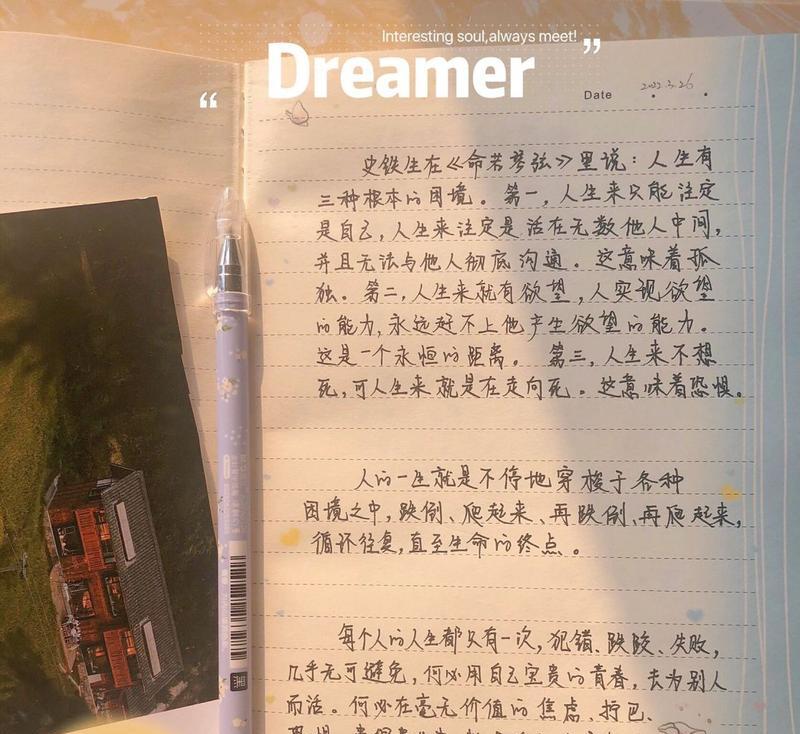 Interesting soul,always meet!
“ Dreamer ”
Date 2022.3.26
史铁生在《命若琴弦》里说：人生有
三种根本的困境。第一，人生来只能注定
是自己，人生来注定是活在无数他人中间，
并且无法与他人彻底沟通。这意味着孤
独。第二，人生来就有欲望，人实现欲望
的能力，永远赶不上他产生欲望的能力。
这是一个永恒的距离。第三，人生来不想
死，可人生来就是在走向死。这意味着恐惧。
人的一生就是不停地穿梭于各种
困境之中，跌倒、爬起来、再跌倒、再爬起来，
循环往复，直至生命的终点。
每个人的人生都只有一次，犯错、跌跤、失败，
几乎无可避免，何必用自己宝贵的青春，去为别人
而活。何必在毫无价值的焦虑、拧巴、
黑